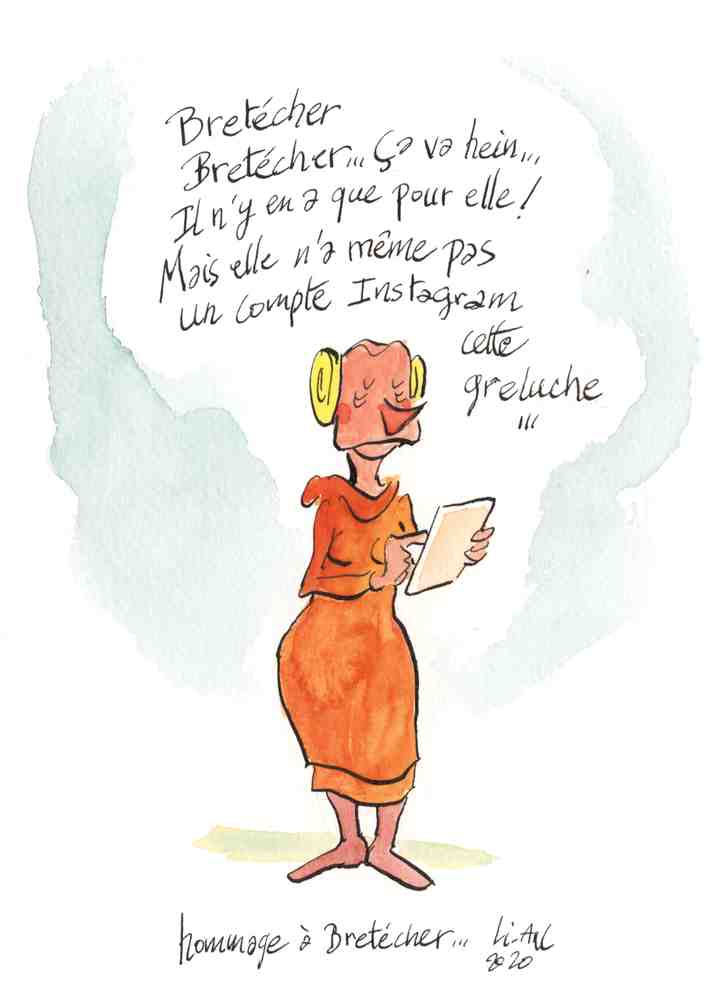 Bretécher
Bretécher... Ça va hein...
Il n'y en a que pour elle!
Mais elle n'a même pas
un compte Instagram
cette
greluche
...
hommage à Bretécher... Li-An
2020